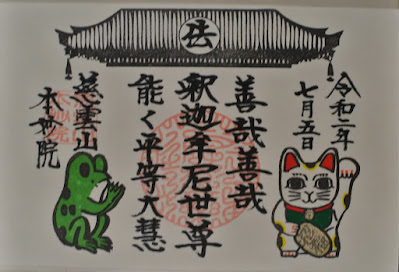 令和二年
七月五日
善哉善哉
釋迦牟尼世尊
能く平等大慧
慈雲山
本妙院